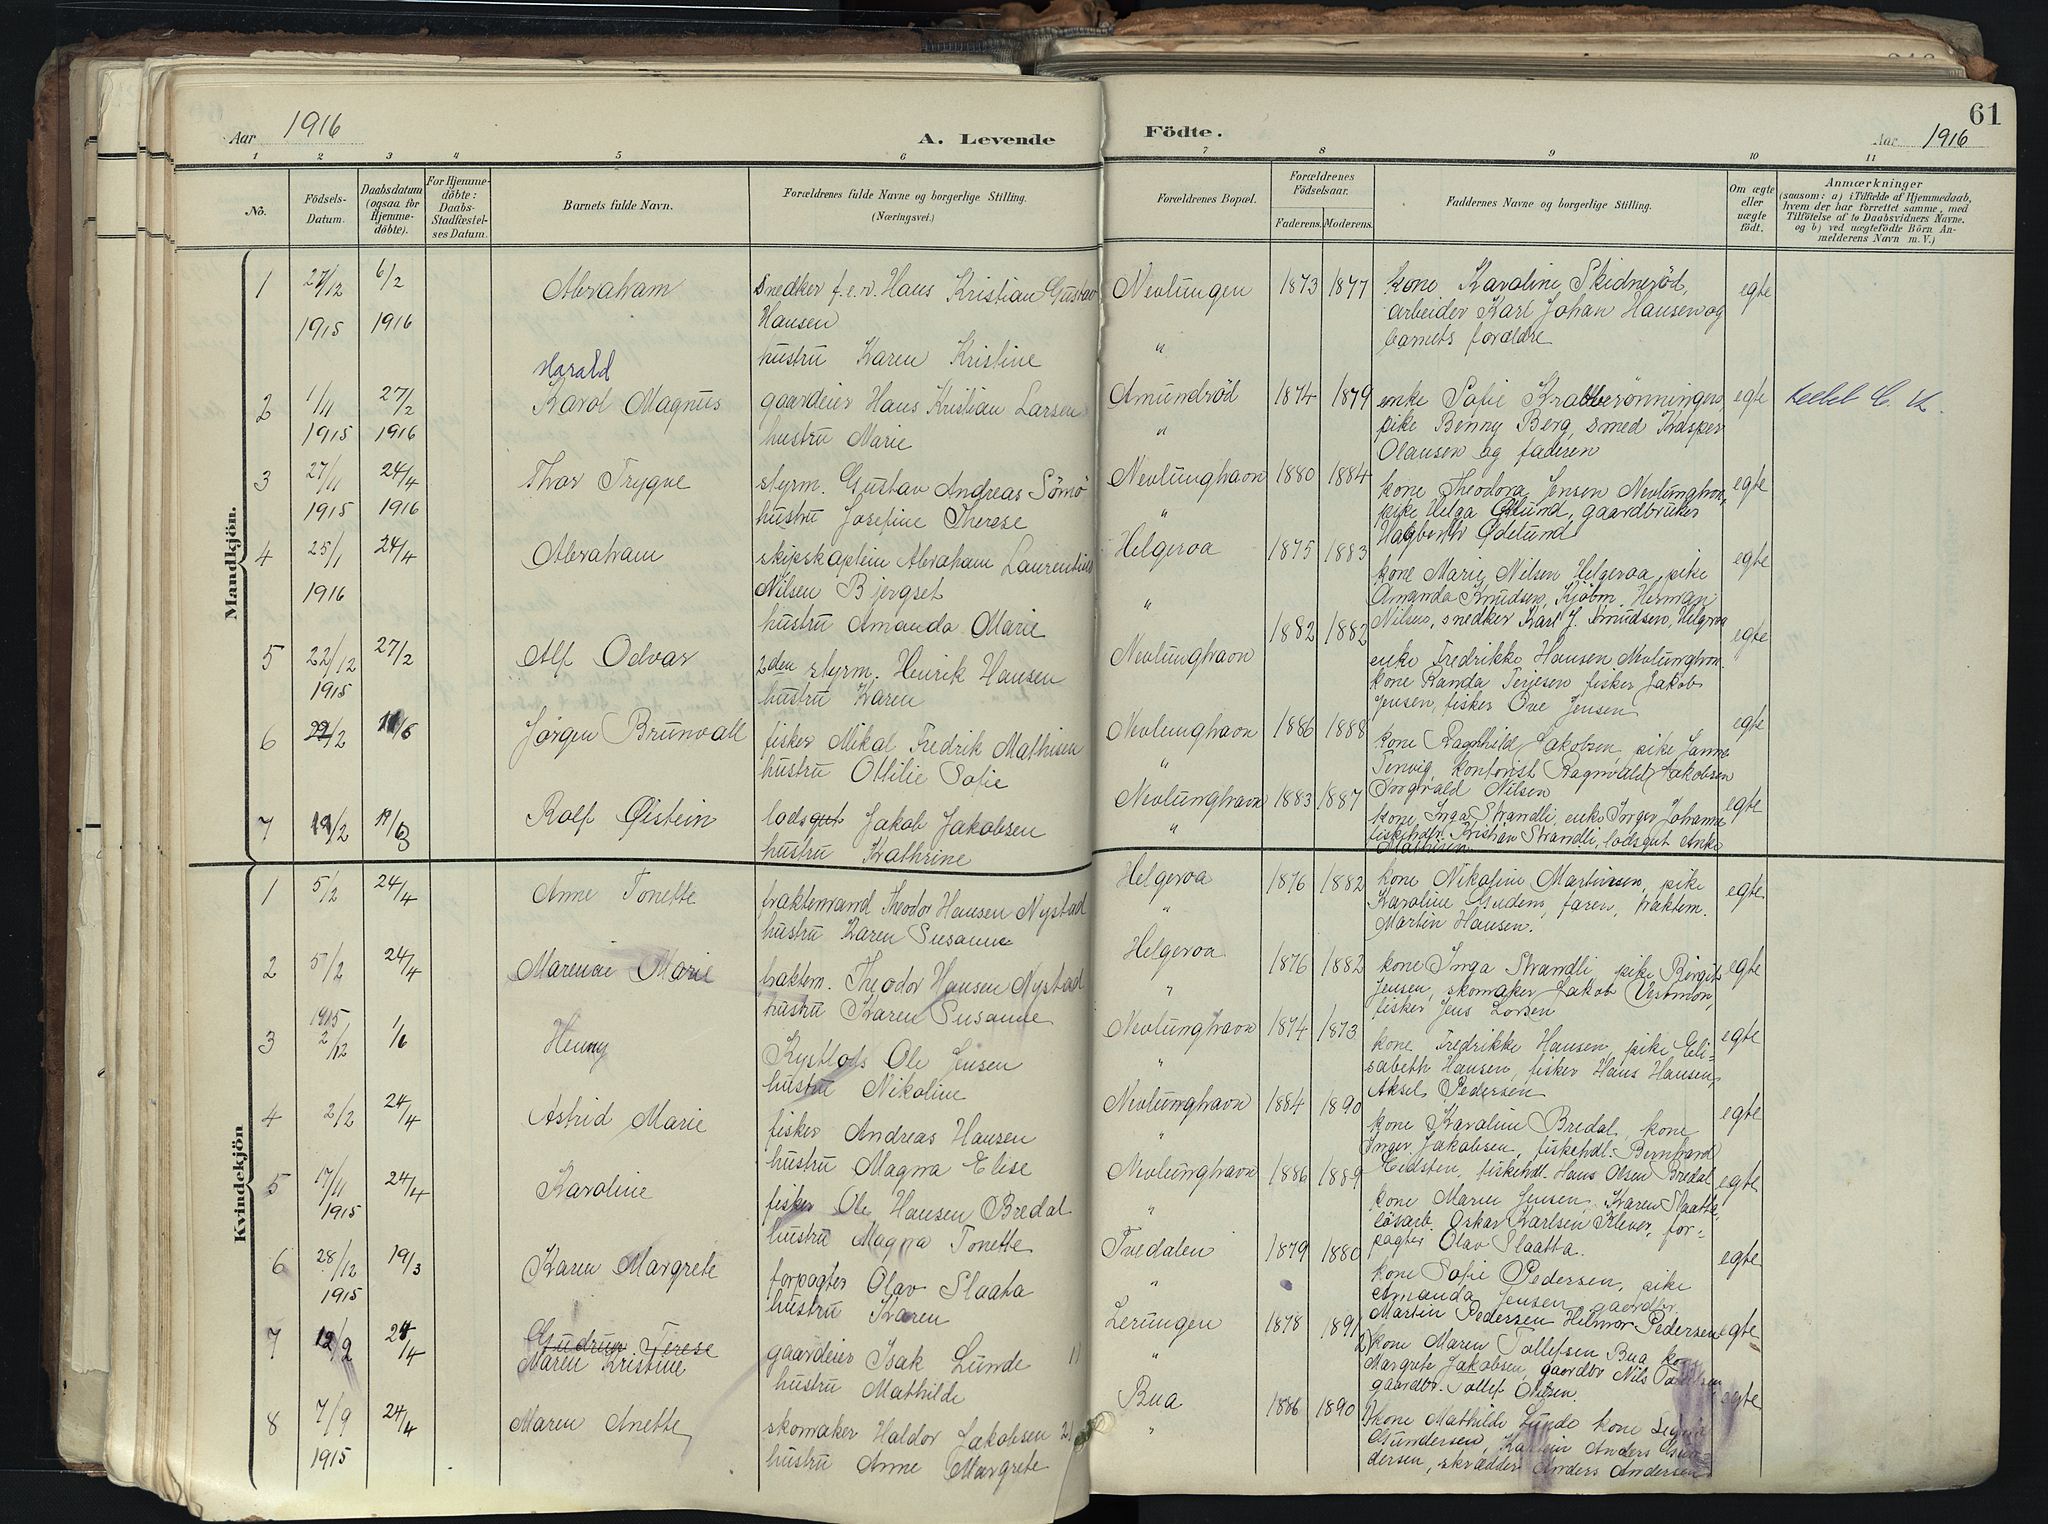 61
Aar 1916
A. Levende
Födte.
Aar 1916
1 2 3 4 5 6 7 8 9 10 11
No.
Födsels-Datum.
Daabsdatum (ogsaa for Hjemmedöbte).
For Hjemmedöbte: Daabs-Stadfæstelses Datum.
Barnets fulde Navn.
Forældrenes fulde Navne og borgerlige Stilling. (Næringsvei.)
Forældrenes Bopæl.
Forældrenes Födselsaar.
Faderens. Moderens.
Faddernes Navne og borgerlige Stilling.
Om ægte eller uægte födt.
Anmærkninger
(saasom: a) i Tilfælde af Hjemmedaab, hvem der har forrettet samme, med Tilföielse af to Daabsvidners Navne. og b) ved uægtefödte Börn Anmelderens Navn m. V.)
Mandkjön.
1 27/12 1915 6/2 1916 Abraham
Snedker f.e.v. Hans Kristian Gustav
Hansen
hustru Karen Kristine
Nevlungen " 1873 1877
kone Karoline Skidneröd,
arbeider Karl Johan Hansen og
barnets forældre
egte
2 1/11 1915 27/2 1916 Harald
Karol Magnus
gaardeier Hans Kristian Larsen
hustru Marie
Amundröd " 1874 1879
enke Sofie Krabberönningen,
pike Benny Berg, smed Kasper
Olausen og faderen
egte
3 27/11 1915 24/4 1916 Thor Trygve
styrm. Gustav Andreas Sömö
hustru Josefine Therese
Nevlunghavn " 1880 1884
kone Theodora Jensen Nevlunghvn,
pike Helga Ödelund, gaardbruker
Ödelund
egte
4 25/1 1916 24/4 Abraham
skipskaptein Abraham Laurentius
Nilsen Bjergset
hustru Amanda Marie
Helgeroa " 1875 1883
kone Marie Nilsen Helgeroa, pike
Amanda Knudsen, Kjöbm. Herman
Nilsen, snedker Karl J. Knudsen, Helgeroa
egte
5 22/12 1915 27/2 Alf Odvar
2den styrm. Henrik Hansen
hustru Karen
Nevlunghavn 1882 1882
enke Fredrikke Hansen Nevlunghvn.
kone Randa Terjesen, fisker Jakob
Jensen, fisker Ove Jensen
egte
6 22/2 11/6 Jörgen Brunvall
fisker Mikal Fredrik Mathisen
hustru Ottilie Sofie
Nevlunghavn " 1886 1888
kone Ragnhild Jakobsen, pike Janna
Tenvig, kontorist Ragnvald Jakobsen
Torgvald Nilsen
egte
7 19/2 19/3 Rolf Øistein
lodsgut Jakob Jakobsen
hustru Kathrine
Nevlunghavn " 1883 1887
kone Inga Strandli, enke Inger Johanne
fiskehdlr. Kristian Strandli, lodsgut Anke
Mathisen
egte
Kvindekjön
1 5/2 24/4 Anne Tonette
fraktemand Theodor Hansen Nystad
hustru Karen Susanne
Helgeroa " 1876 1882
kone Nikoline Martinsen, pike
Karoline Gudem, faren, fraktem.
Martin Hansen.
egte
2 5/2 24/4 Marenæ Marie
fraktem. Theodor Hansen Nystad
hustru Karen Susanne
Helgeroa " 1876 1882
kone Inga Strandli, pike Birgit
Jensen, skomaker Jakob Vestmon,
fisker Jens Larsen
egte
3 1915 2/12 1/6 Henny
Kystlods Ole Jensen
hustru Nikoline
Nevlunghavn " 1874 1873
kone Fredrikke Hansen, pike Eli-
sabeth Hansen, fisker Hans Hansen,
Aksel Pedersen
egte
4 2/2 24/4 Astrid Marie
fisker Andreas Hansen
hustru Magna Elise
Nevlunghavn " 1884 1890
kone Karoline Bredal, kone
Inger Jakobsen, fiskehdl. Bernhard
Eidsten, fiskehdl. Hans Olsen Bredal
egte
5 17/11 1915 24/4 Karoline
fisker Ole Hansen Bredal
hustru Magna Tonette
Nevlunghavn " 1886 1889
kone Maren Jensen, Karen Slaatta,
lösarb. Oskar Karlsen Klever, for-
pagter Olav Slaatta.
egte
6 28/12 1915 19/3 Karen Margrete
forpagter Olav Slaata
hustru Karen
Tvedalen " 1879 1880
kone Sofie Pedersen, pike
Amanda Jensen, gaardbr.
Martin Pedersen Helmor Pedersen
egte
7 12/2 24/4 Gudrun Terese
Maren Kristine
gaardeier Isak Lunde 1)
hustru Mathilde
Lerungen " 1878 1891
2) kone Maren Tollefsen Bua, kone
Margrete Jakobsen, gaardbr Nils
gaardbr. Tollef Olsen.
egte
8 7/9 1915 24/4 Maren Anette
skomaker Haldor Jakobsen 2)
hustru Anne Margrete
Bua " 1886 1890
1) kone Mathilde Lunde kone Signe
Gundersen, Anders Gun-
dersen, skrædder Anders Andersen
egte